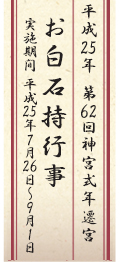 平成25年 第62回神宮式年遷宮
お白石持行事
実施期間 平成25年7月26日～9月1日